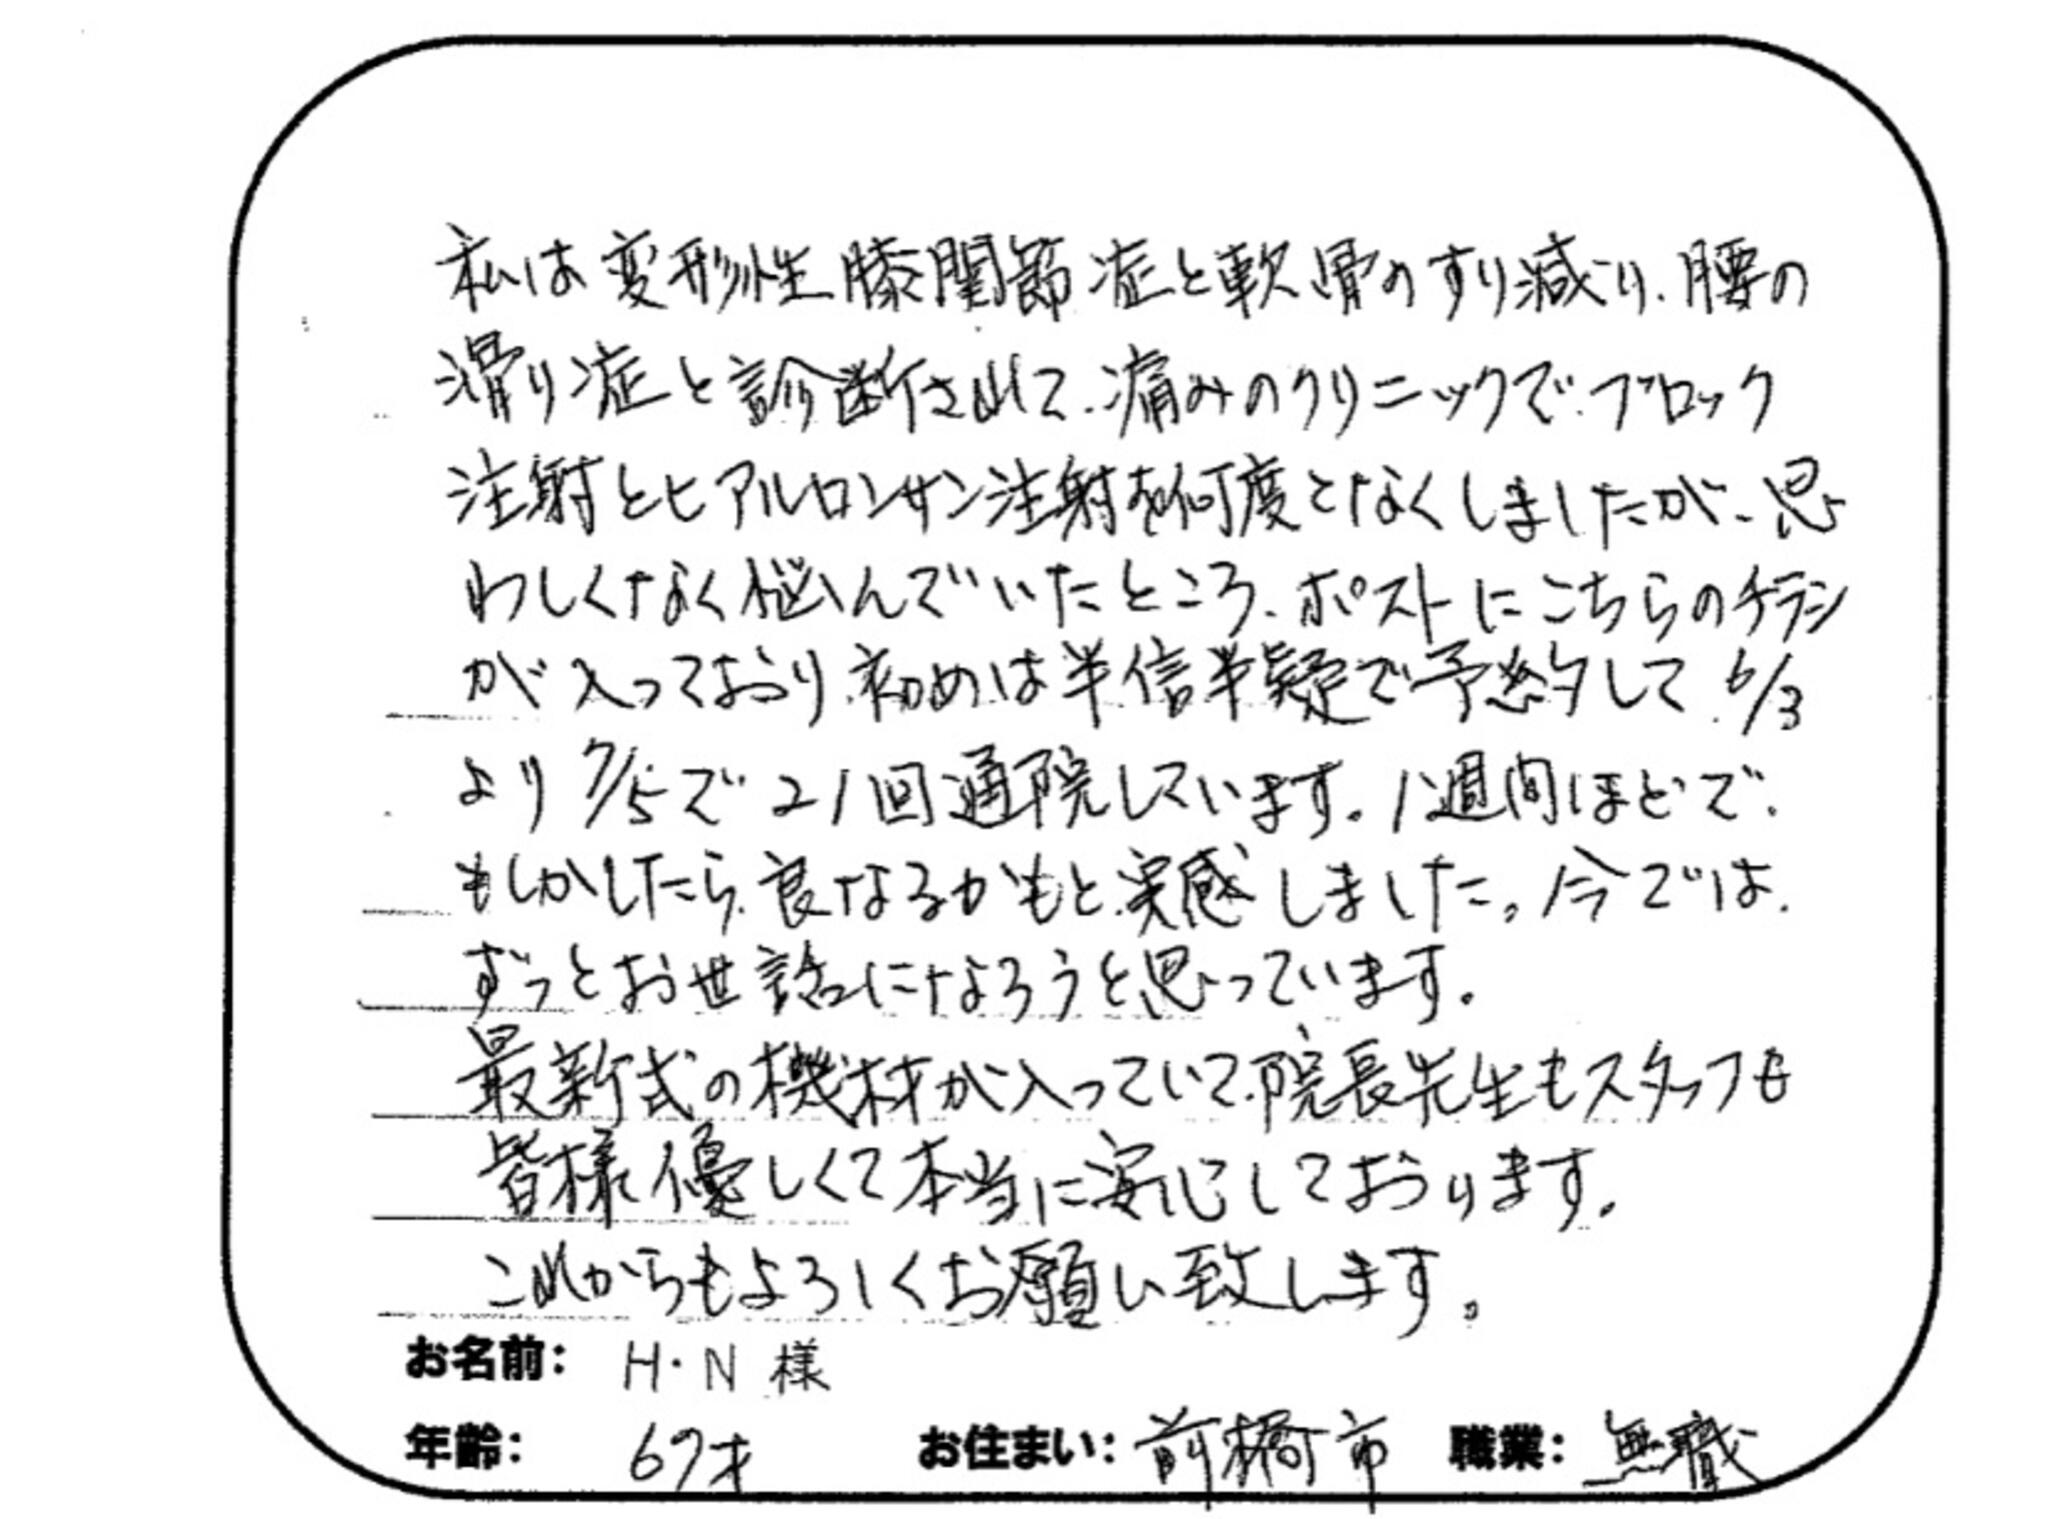 私は変形性膝関節症と軟骨のすり減り、腰の
滑り症と診断されて、痛みのクリニックで、ブロック
注射とヒアルロンサン注射を何度となくしましたが、思
わしくなく悩んでいたところ、ポストにこちらのチラシ
が入っており、初めは半信半疑で予約して、6/3
より7/5で21回通院しています。1週間ほどで、
もしかしたら、良なるかもと、実感しました。今では、
ずっとお世話になろうと思っています。
最新式の機材が入っていて、院長先生もスタッフも
皆様優しくて本当に安心しております。
これからもよろしくお願い致します。
お名前： H・N 様
年齢： 67才 お住まい： 前橋市 職業： 無職